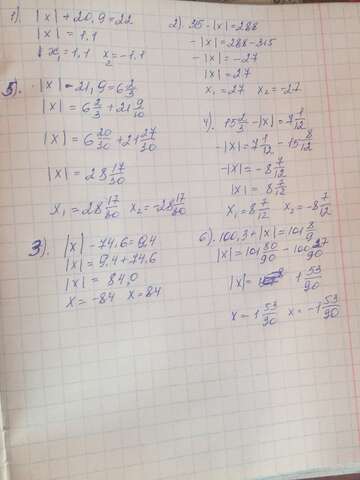 1). |x| + 20,9 = 22
|x| = 1,1
x₁ = 1,1 x₂ = -1,1
2). 315 - |x| = 288
-|x| = 288 - 315
-|x| = -27
|x| = 27
x₁ = 27 x₂ = -27
5). |x| - 21,9 = 6 2/3
|x| = 6 2/3 + 21 9/10
|x| = 6 20/30 + 21 27/30
|x| = 28 17/30
x₁ = 28 17/30 x₂ = -28 17/30
4). 15 2/3 - |x| = 7 1/12
-|x| = 7 1/12 - 15 8/12
-|x| = -8 7/12
|x| = 8 7/12
x₁ = 8 7/12 x₂ = -8 7/12
3). |x| - 74,6 = 9,4
|x| = 9,4 + 74,6
|x| = 84,0
x = -84 x = 84
6). 100,3 + |x| = 101 8/9
|x| = 101 80/90 - 100 27/90
|x| = 1 53/90
x = 1 53/90 x = -1 53/90